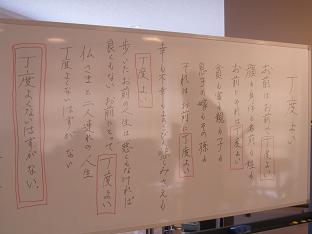 丁度よい
お前はお前で丁度よい
顔も身体も名前も姓も
お前にそれは丁度よい
貧も富も親も子も
息子の嫁もその孫も
それはお前に丁度よい
幸も不幸もよろこびも悲しみさえも
丁度よい
歩いたお前の人生は悪くもなければ
良くもないお前にとって丁度よい
仏さまと二人連れの人生
丁度よくないはずがない
丁度よくないはずがない。